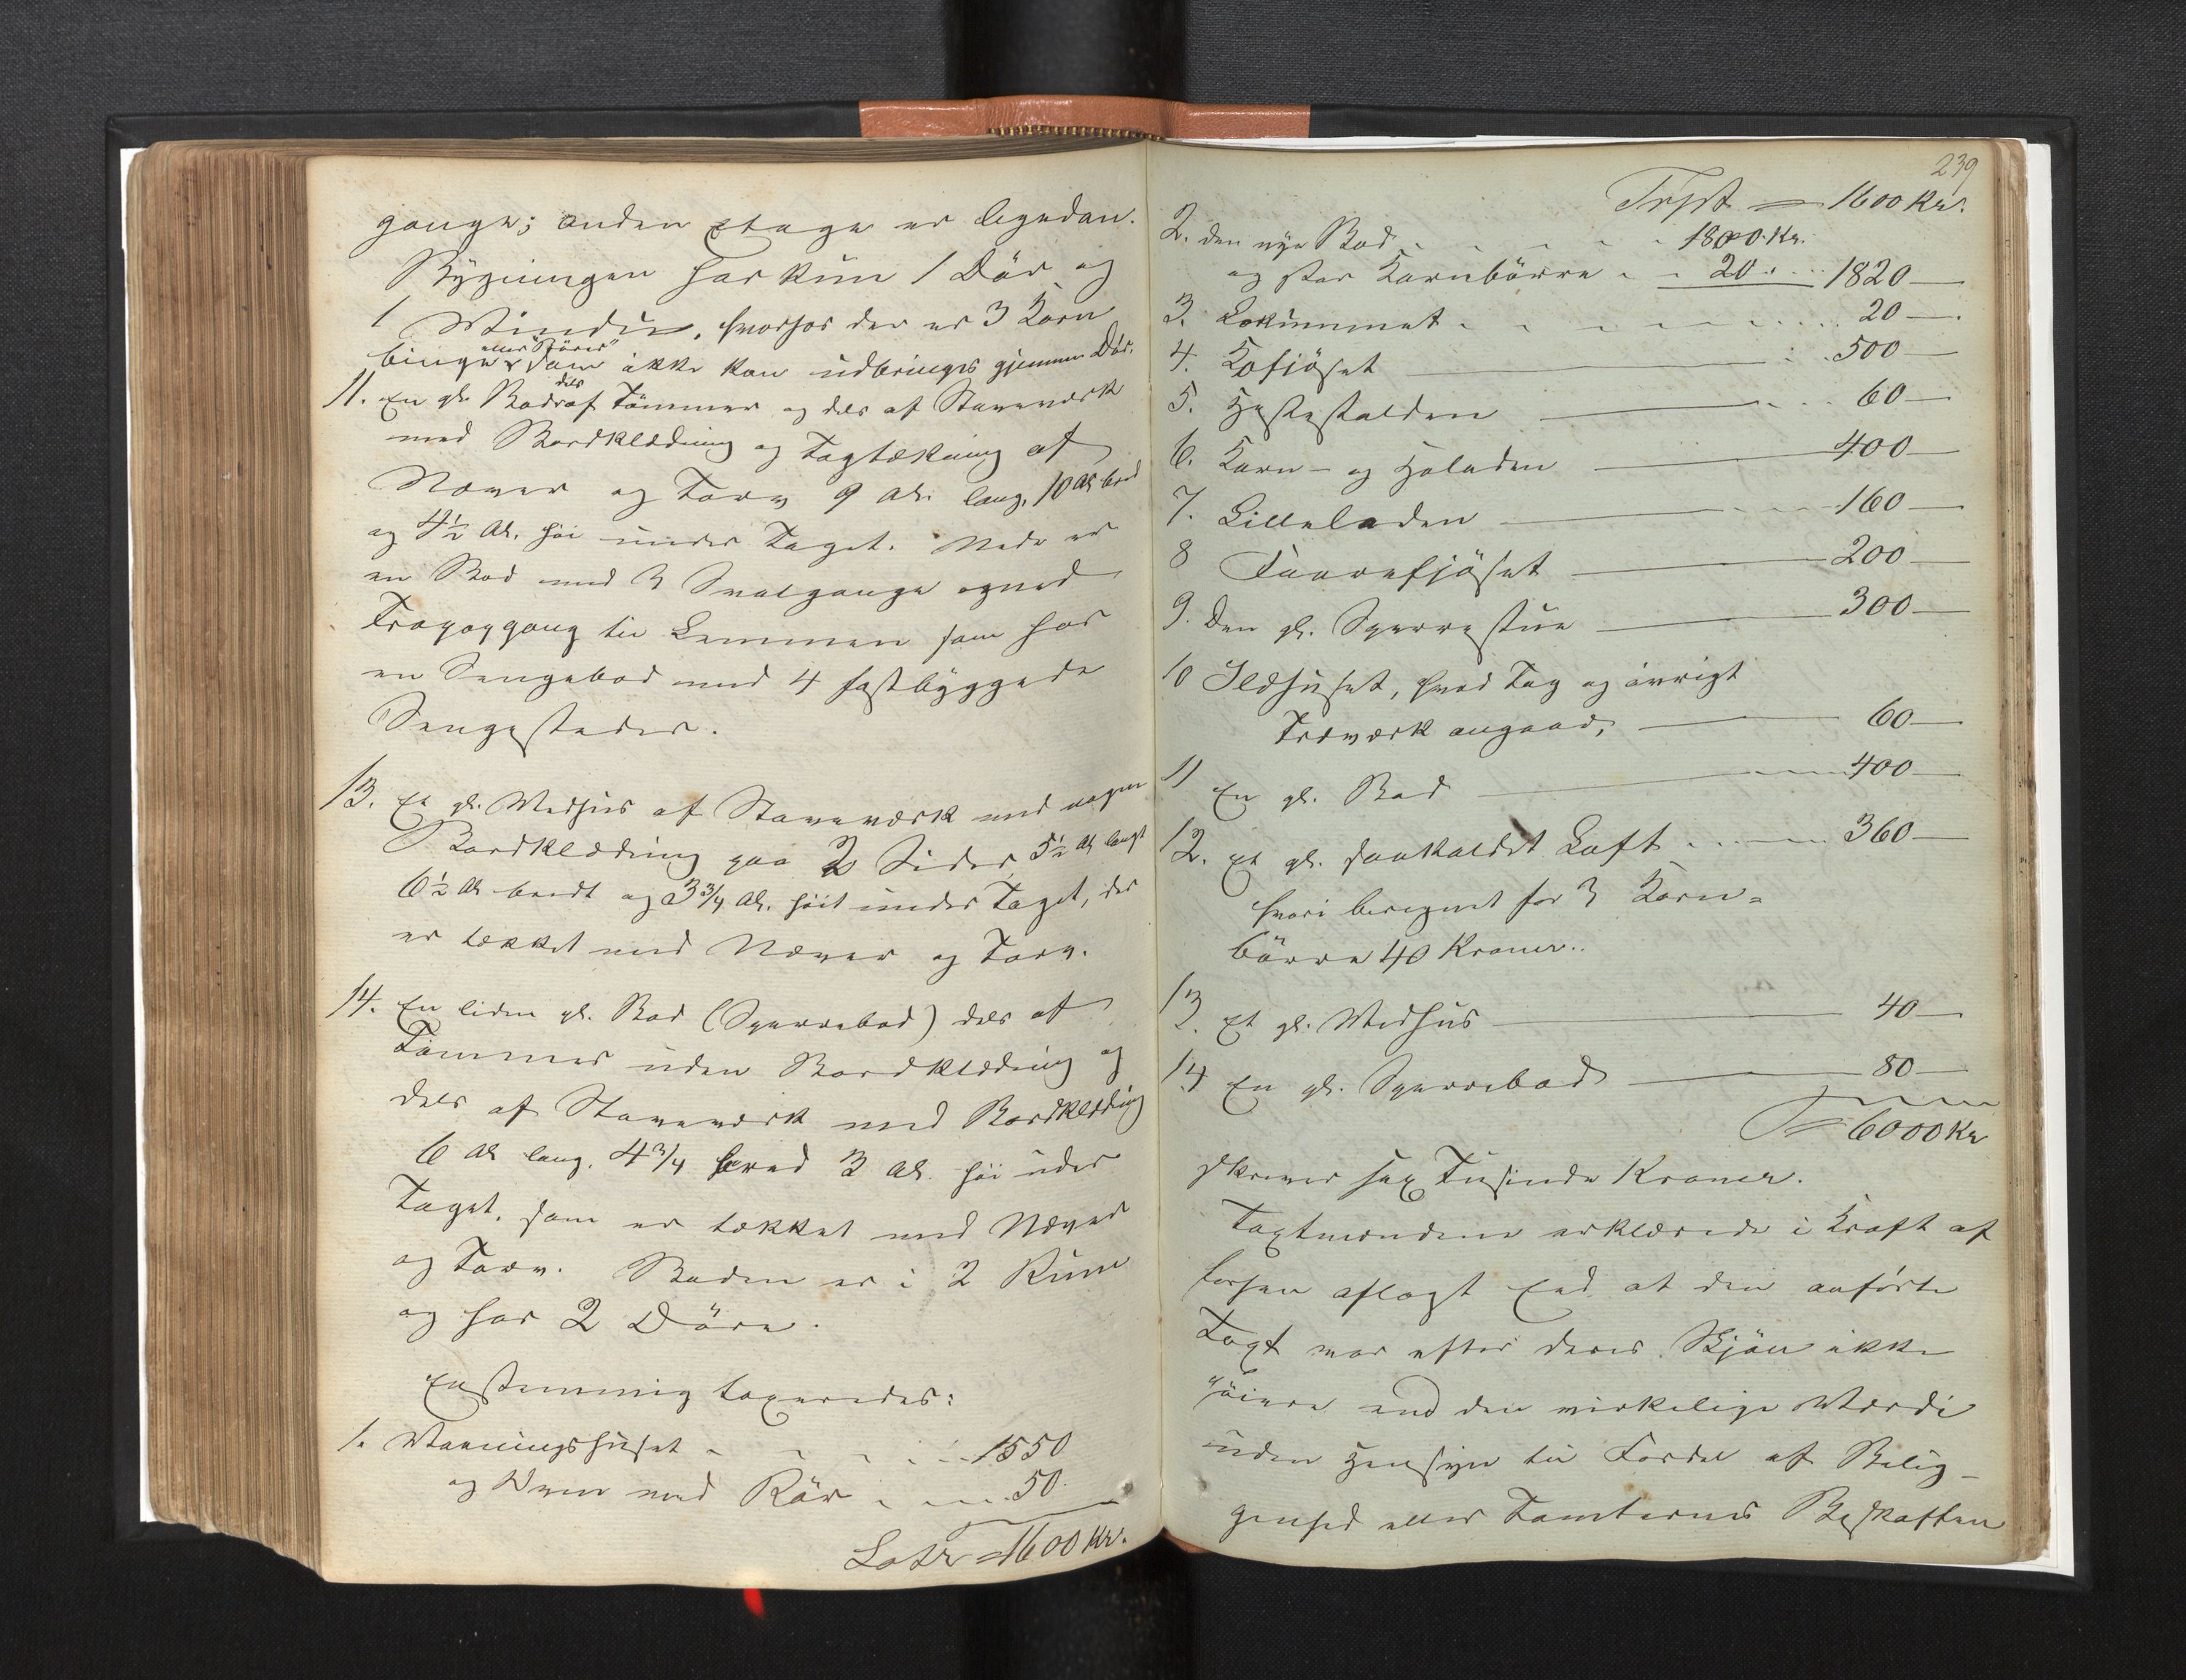 gange; anden Etage er ligedan.
Bygningen har kun 1 Dör og
1 Vindue, hvorhos der er 3 Korn
binger eller "Börer" som ikke kan udbringes gjennem Dör.
11. En gl. Bod dels af Tömmer og dels af Stavværk
med Bordklædning og Tagtækning af
Næver og Torv 9 Al. lang, 10 Al. bred
og 4½ Al. höi under Taget. Nede er
en Bod med 3 Svalgange og med
Trappegang til Lemmen som har
en Sengebod med 4 fastbyggede
Sengesteder.
13. Et gl. Vedhus af Stavværk med nogen
Bordklædning paa 2 Sider, 5½ Al. langt
6½ Al. bredt og 3¾ Al. höit under Taget, der
er tækket med Næver og Torv.
14. En liden gl. Bod (Sperrebod) dels af
Tömmer uden Bordklædning og
dels af Stavværk med Bordklædning
6 Al. lang, 4¾ bred 3 Al. höi under
Taget, som er tækket med Næver
og Torv. Boden er i 2 Rum
og har 2 Döre.
Enstemmig taxeredes:
1. Vaaningshuset 1550
og Ovn med Rör 50.
Lats = 1600 Kr.
239
Trpt = 1600 Kr.
2. den nye Bod 1800 Kr.
og stor Kornbörre 20 1820
3. Lokummet 20
4. Kofjöset 500
5. Hestestalden 60
6. Korn- og Höladen 400
7. Lilleladen 160
8 Faarefjöset 200
9. Den gl. Sperrestue 300
10 Ildhuset, hvad Tag og övrigt
Træværk angaar, 60
11 En gl. Bod 400
12. Et gl. saakaldet Loft 360
hvori beregnet for 3 Korn-
börre 40 Kroner.
13. Et gl. Vedhus 40
14 En gl. Sperrebod 80
S = 6000 Kr
skriver sex Tusinde Kroner.
Taxtmændene erklærede i Kraft af
forhen aflagt Eed at den anförte
Taxt var efter deres Skjön ikke
höiere end den virkelige Værdi
uden Hensyn til Fordel af Belig-
genhed eller Tomternes Beskaffen